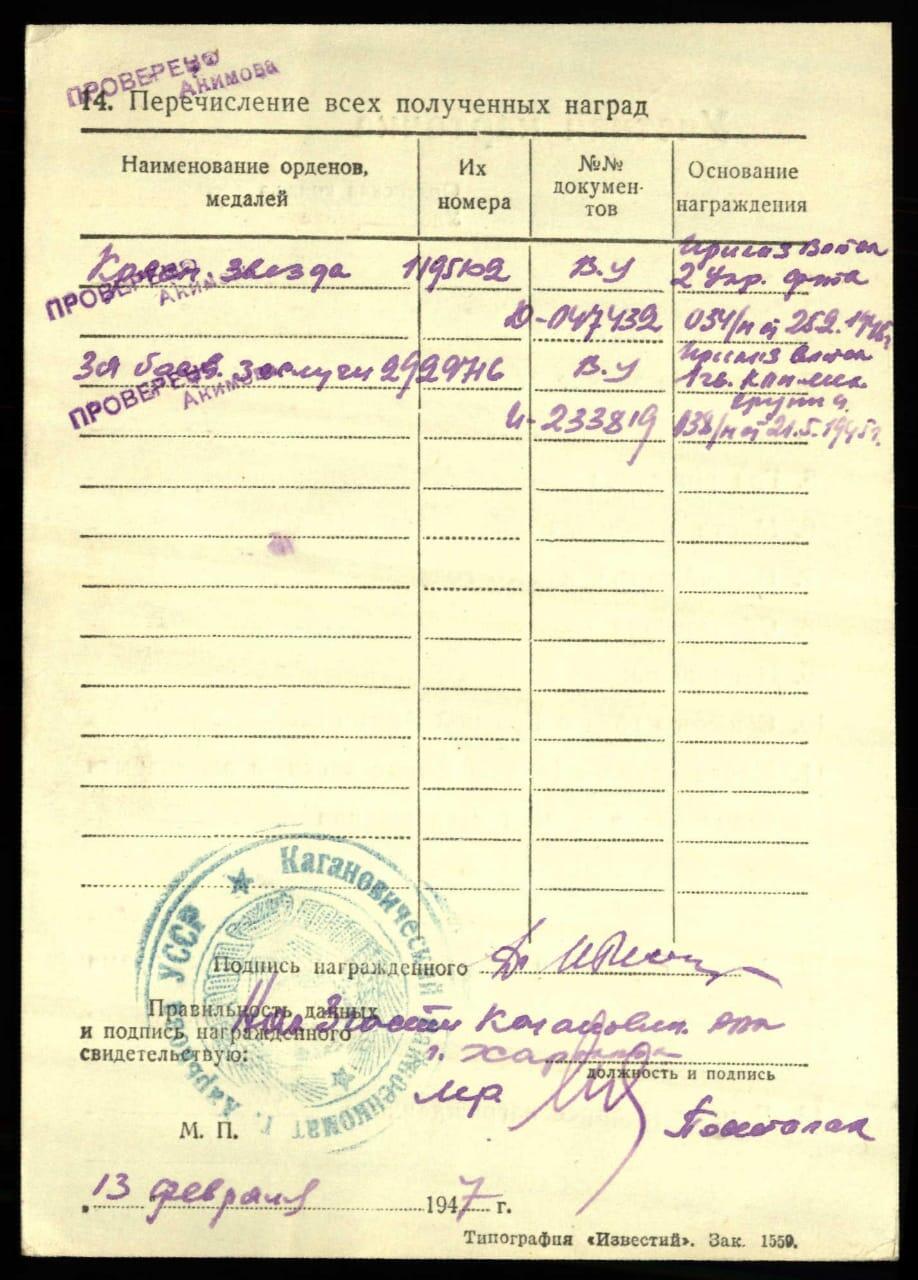 ПРОВЕРЕНО
Акимова
14. Перечисление всех полученных наград
Наименование орденов, медалей
Их номера
№№ документов
Основание награждения
Красн. Звезда 1195102 В.У Приказ Войск
2 Укр. фта
Д-047439 034/н от 25.2.1946г
ПРОВЕРЕНО
Акимова
За боев. заслуги 2929746 В.У Приказ Войск
1 гв. кав. мех.
группа
И-233819 038/н от 21.5.1945г.
ПРОВЕРЕНО
Акимова
Подпись награжденного
Правильность данных
и подпись награжденного
свидетельствую:
Нач 3 части Каганович. РВК
г. Харькова
должность и подпись
М. П.
13 февраля 1947 г.
Кагановический Райвоенкомат г. Харьков УССР
Типография «Известий». Зак. 1559.